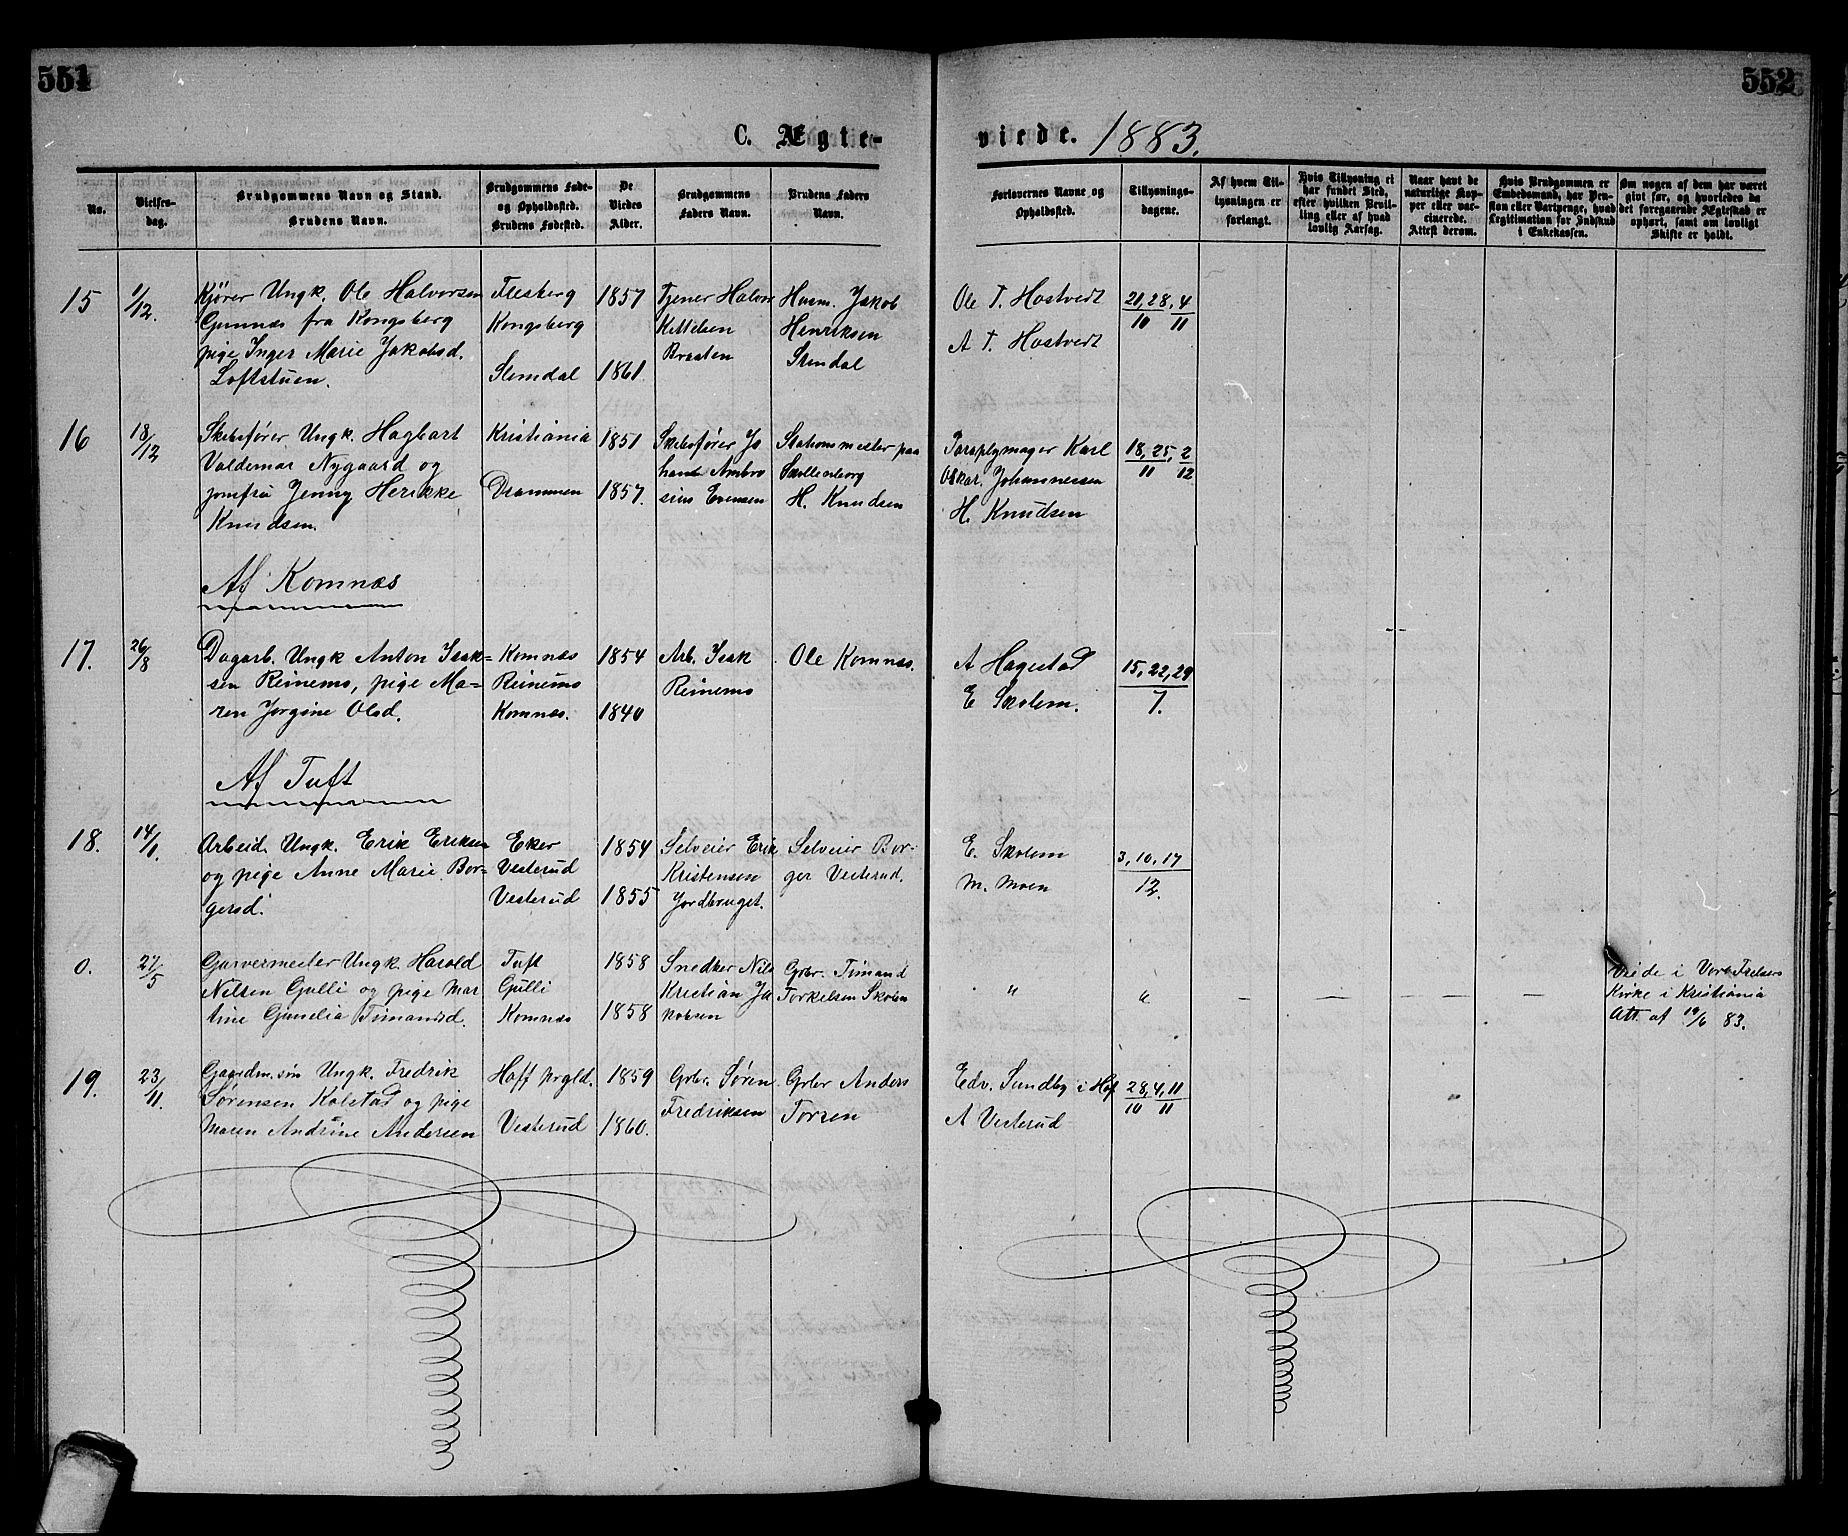 551
552
C. Ægte-
viede. 1883.
No.
Vielses-
dag.
Brudgommens Navn og Stand.
Brudens Navn.
Brudgommens Føde-
og Opholdssted.
Brudens Fødested.
De
Viedes
Alder.
Brudgommens
Faders Navn.
Brudens Faders
Navn.
Forlovernes Navne og
Opholdssted.
Tillysnings-
dagene.
Af hvem Til-
lysningen er
forlangt.
Hvis Tillysning ei
har fundet Sted,
efter hvilken Bevil-
ling eller af hvad
lovlig Aarsag.
Naar havt de
naturlige Kop-
per eller vac-
cinerede.
Attest derom.
Hvis Brudgommen er
Embedsmand, har Pen-
sion eller Vartpenge, hvad
Legitimation for Indskud
i Enkekassen.
Om nogen af dem har været
givt før, og hvorledes da
det foregaaende Ægteskab er
ophørt, samt om lovligt
Skifte er holdt.
15
1/12.
Kjører Ungk. Ole Halvorsen
Gunnæs fra Kongsberg
pige Inger Marie Jakobsd.
Loftstuen.
Flesberg
Kongsberg
Slemdal
1857
1861
Tjener Halvor
Kittelsen
Braaten
Husm. Jakob
Henriksen
Ole T. Hostvedt
A T. Hostvedt
21, 28, 4
10 11
16
18/12
Skibsfører Ungk. Hagbart
Valdemar Nygaard og
jomfru Jenny Herikke
Knudsen.
Kristiania
Drammen
1851
1857.
Skibsfører Jo
hand Ambro
sius Evensen
Stationsmester paa
Skollenborg
H. Knudsen
Paraplymager Karl
Oskar. Johannessen
H. Knudsen
18, 25, 2
11 12
Af Komnæs
17.
26/8
Dagarb. Ungk Anton Isak-
sen Reinemo, pige Ma-
ren Jorgine Olsd.
Komnæs
Reinemo
Komnæs.
1854
1840
Arb. Isak
Reinemo
Ole Komnæs.
A Hagestad
E Skolem.
15, 22, 29
7.
Af Tuft
18.
14/1.
Arbeid. Ungk. Erik Eriksen
og pige Anne Marie Bor-
gersd.
Eker
Vesterud
Vesterud
1854
1855
Selveier Erik
Kristensen
Jordbruget.
Selveier Bor-
ger Vesterud.
E. Skolem
M. Moen
3, 10, 17
12.
0.
27/5
Garvermester Ungk. Harold
Nilsen Gulli og pige Mar
tine Gunelia Timandsd.
Tuft
Gulli
Komnæs
1858
1858
Snedker Nils
Kristian Ja
kobsen
Grbr. Timand
Torkelsen Skolen
"
"
— — — —
Viede i Vore Frelsers
Kirke i Kristiania
Att. af 19/6 83.
19.
23/11.
Gaardm. søn Ungk. Fredrik
Sørensen Kolstad og pige
Maren Andrine Andersen
Hoff prgld.
Vesterud
1859
1860.
Grbr. Søren
Fredriksen
Grbr Anders
Torsen
Edv. Sundby i Hof
A Vesterud
28, 4, 11
10 11